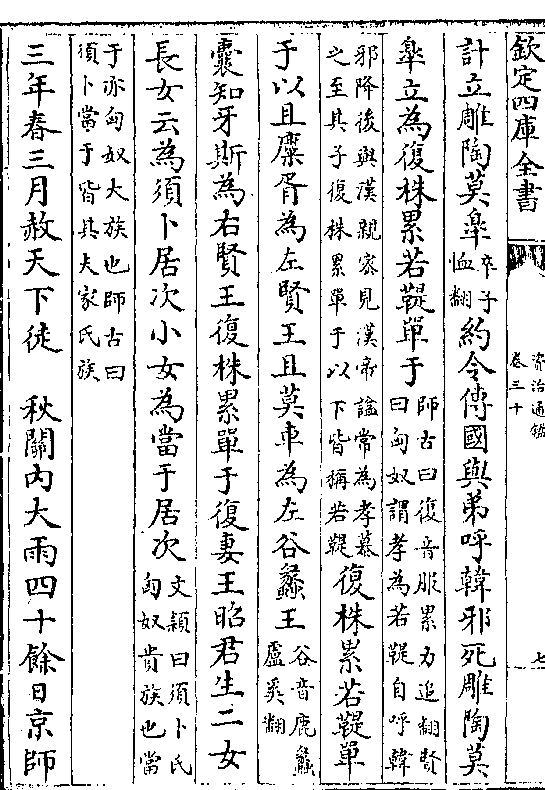 欽定四庫全書
資治通鑑
卷三十
七
計立雕陶莫臯
卒子
恤翻
約令傳國與弟呼韓邪死雕陶莫
臯立為復株累若鞮單于
師古曰復音服累力追翻賢
曰匈奴謂孝為若鞮自呼韓
邪降後與漢親宻見漢帝諡常為孝慕
之至其子復株累單于以下皆稱若鞮
復株累若鞮單
于以且麋胥為左賢王且莫車為左谷蠡王
谷音鹿蠡
盧奚翻
囊知牙斯為右賢王復株累單于復妻王昭君生二女
長女云為須卜居次小女為當于居次
文穎曰須卜氏
匈奴貴族也當
于亦匈奴大族也師古曰
須卜當于皆其夫家氏族
三年春三月赦天下徒 秋關内大雨四十餘日京師